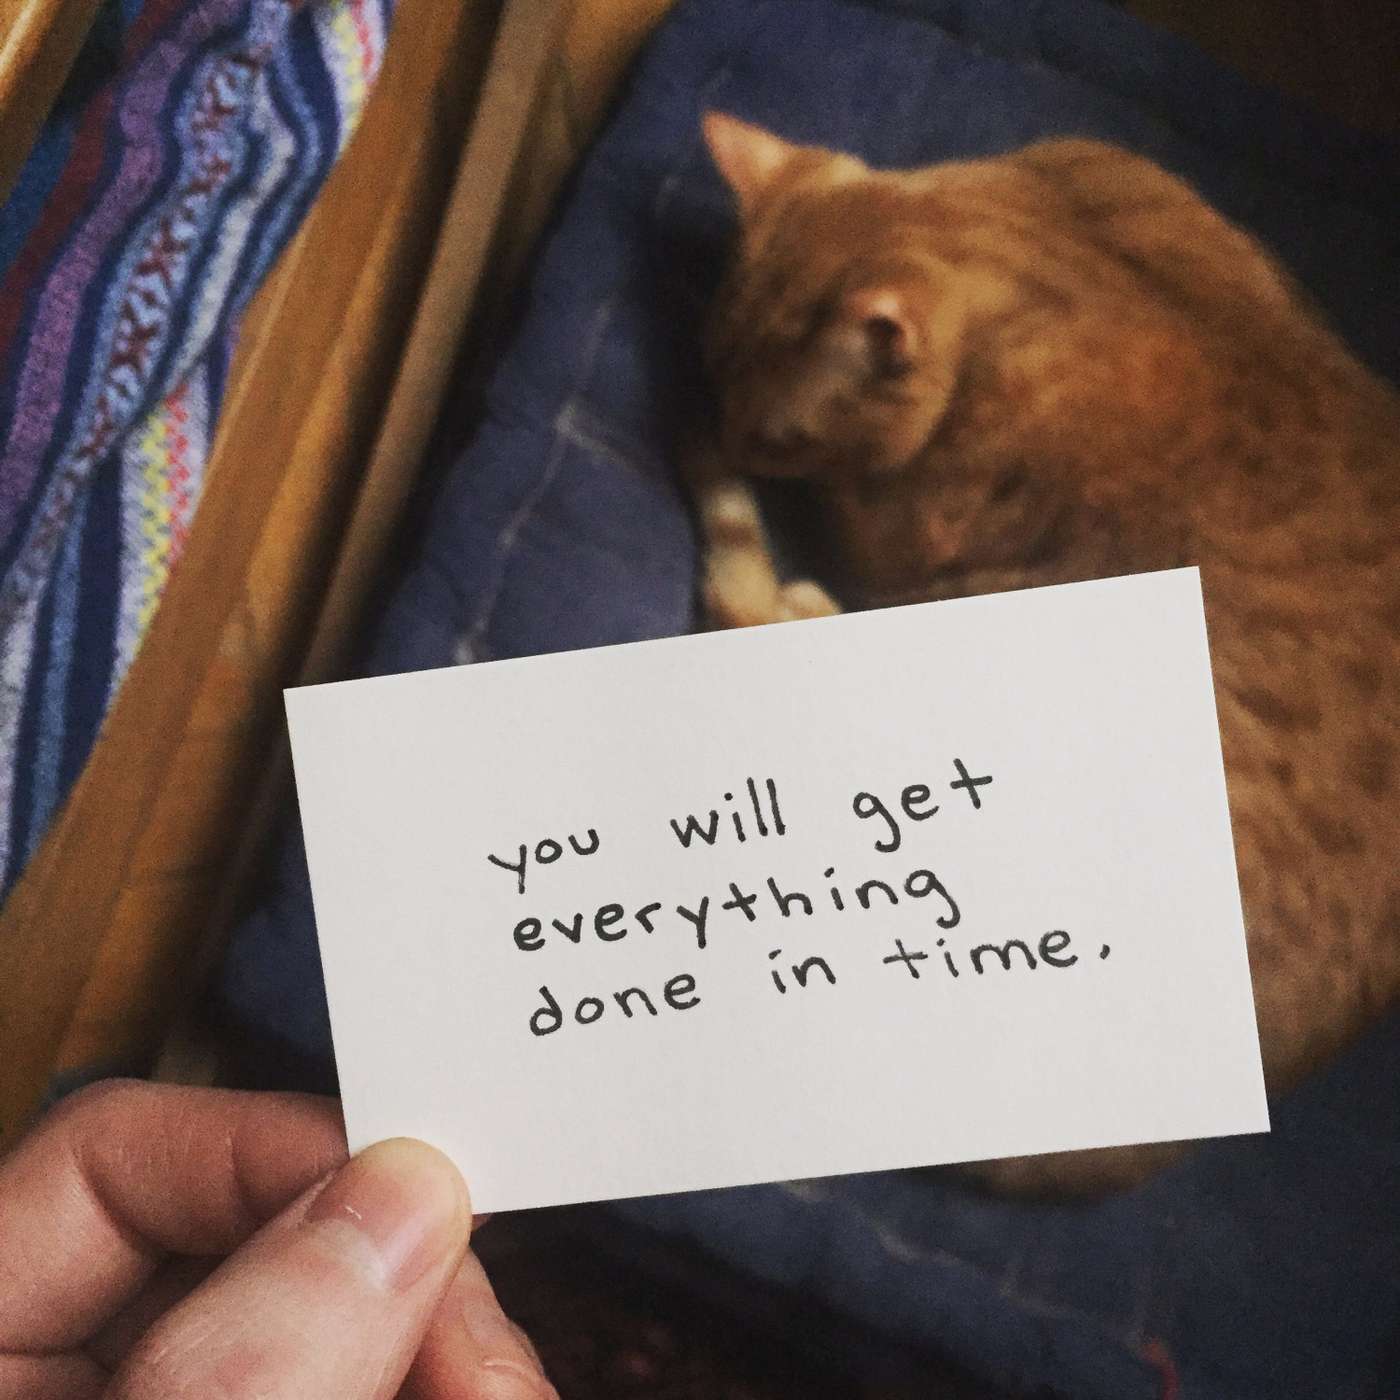 you will get
everything
done in time.